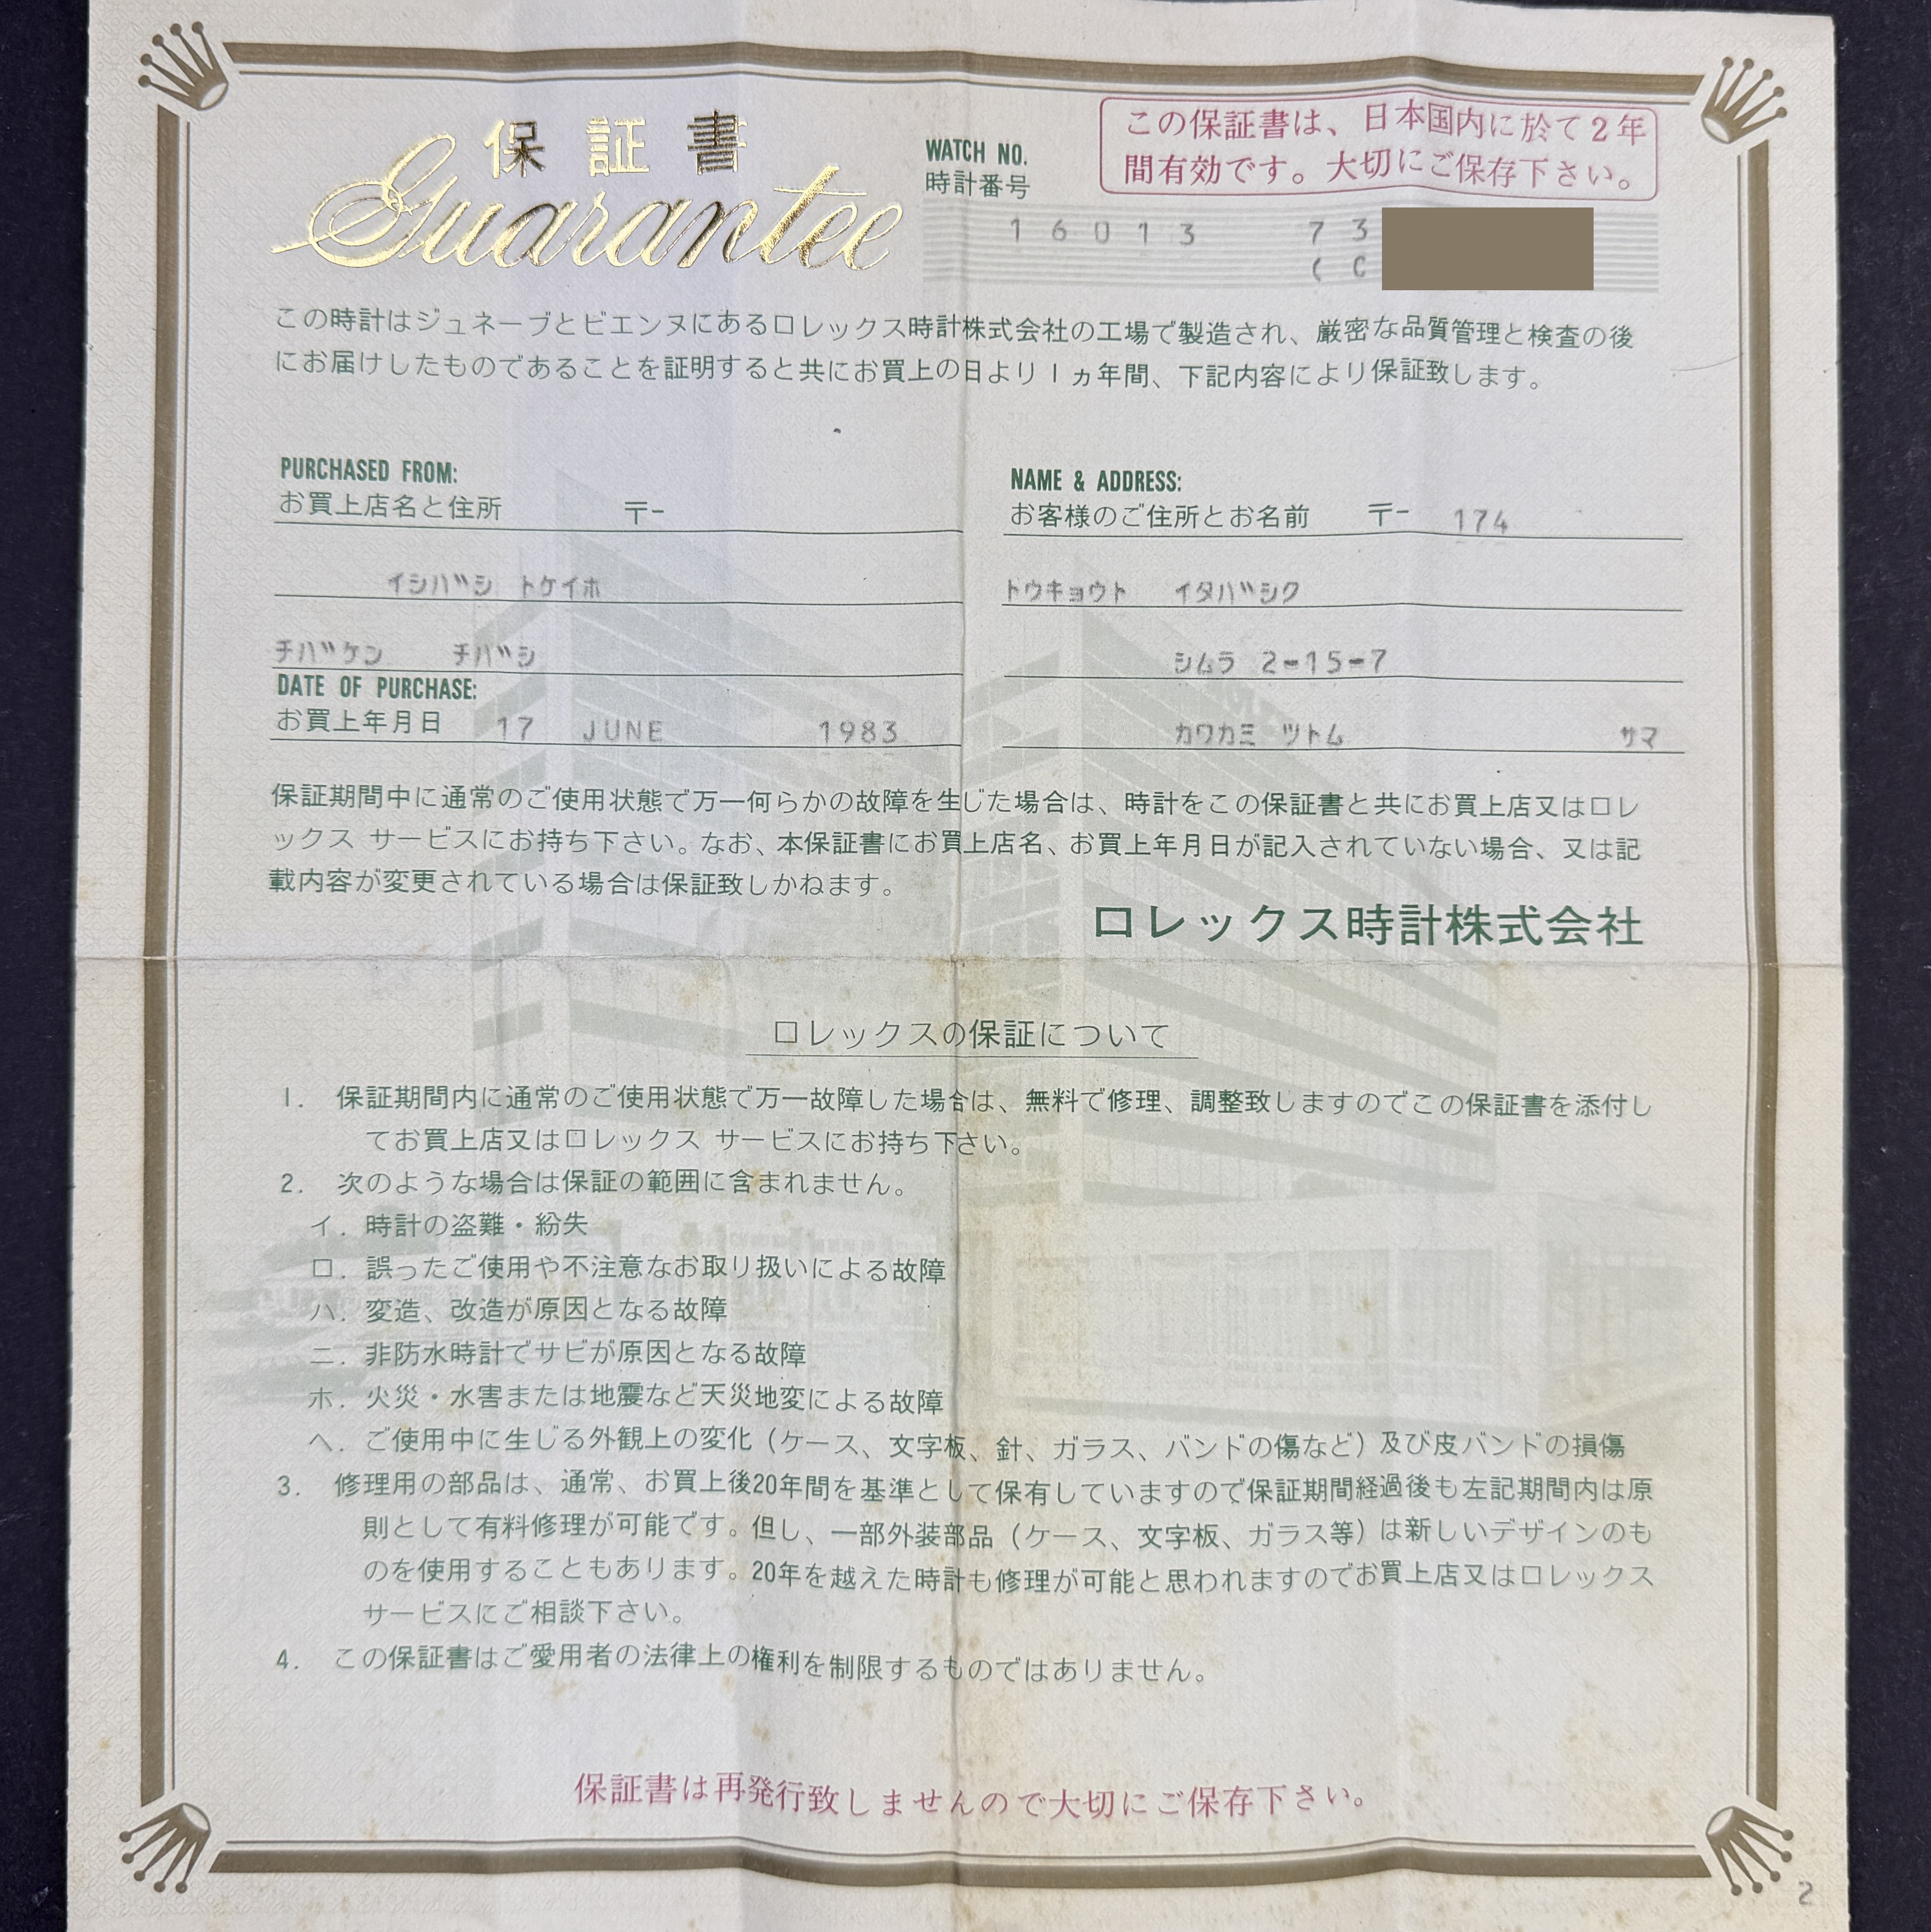 保証書
Guarantee
WATCH NO.
時計番号
この保証書は、日本国内に於て2年
間有効です。大切にご保存下さい。
16013 73
(C
この時計はジュネーブとビエンヌにあるロレックス時計株式会社の工場で製造され、厳密な品質管理と検査の後
にお届けしたものであることを証明すると共にお買上の日より1ヵ年間、下記内容により保証致します。
PURCHASED FROM:
お買上店名と住所 〒-
イシバシ トケイホ
チバケン チバシ
DATE OF PURCHASE:
お買上年月日 17 JUNE 1983
NAME & ADDRESS:
お客様のご住所とお名前 〒- 174
トウキョウト イタバシク
シムラ 2-15-7
カワカミ ツトム サマ
保証期間中に通常のご使用状態で万一何らかの故障を生じた場合は、時計をこの保証書と共にお買上店又はロレ
ックス サービスにお持ち下さい。なお、本保証書にお買上店名、お買上年月日が記入されていない場合、又は記
載内容が変更されている場合は保証致しかねます。
ロレックス時計株式会社
ロレックスの保証について
1. 保証期間内に通常のご使用状態で万一故障した場合は、無料で修理、調整致しますのでこの保証書を添付し
てお買上店又はロレックス サービスにお持ち下さい。
2. 次のような場合は保証の範囲に含まれません。
イ. 時計の盗難・紛失
ロ. 誤ったご使用や不注意なお取り扱いによる故障
ハ. 変造、改造が原因となる故障
ニ. 非防水時計でサビが原因となる故障
ホ. 火災・水害または地震など天災地変による故障
ヘ. ご使用中に生じる外観上の変化(ケース、文字板、針、ガラス、バンドの傷など)及び皮バンドの損傷
3. 修理用の部品は、通常、お買上後20年間を基準として保有していますので保証期間経過後も左記期間内は原
則として有料修理が可能です。但し、一部外装部品(ケース、文字板、ガラス等)は新しいデザインのも
のを使用することもあります。20年を越えた時計も修理が可能と思われますのでお買上店又はロレックス
サービスにご相談下さい。
4. この保証書はご愛用者の法律上の権利を制限するものではありません。
保証書は再発行致しませんので大切にご保存下さい。
2